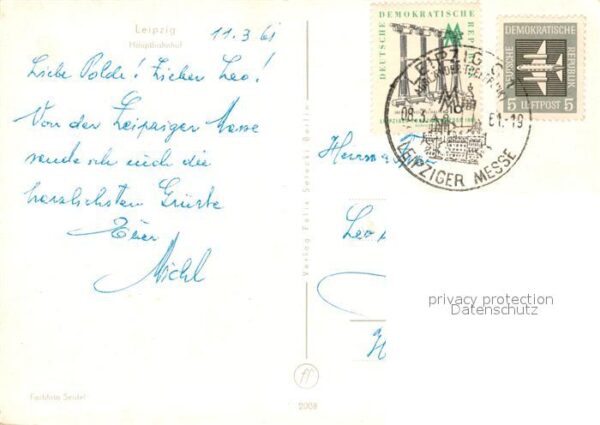 Leipzig
Hauptbahnhof
11.3.61
Liebe Polde! Lieber Leo!
Von der Leipziger Messe
sende ich euch die
herzlichsten Grüsse
Euer
Michl
Fachfoto Seidel
Verlag Felix Setecki Berlin
2008
DEUTSCHE DEMOKRATISCHE REP
LEIPZIG
DEMOKRATISCHE
DEUTSCHE
REPUBLIK
5 LUFTPOST 5
LEIPZIG
61.-18
LEIPZIGER MESSE
Herrn
Leo
privacy protection
Datenschutz